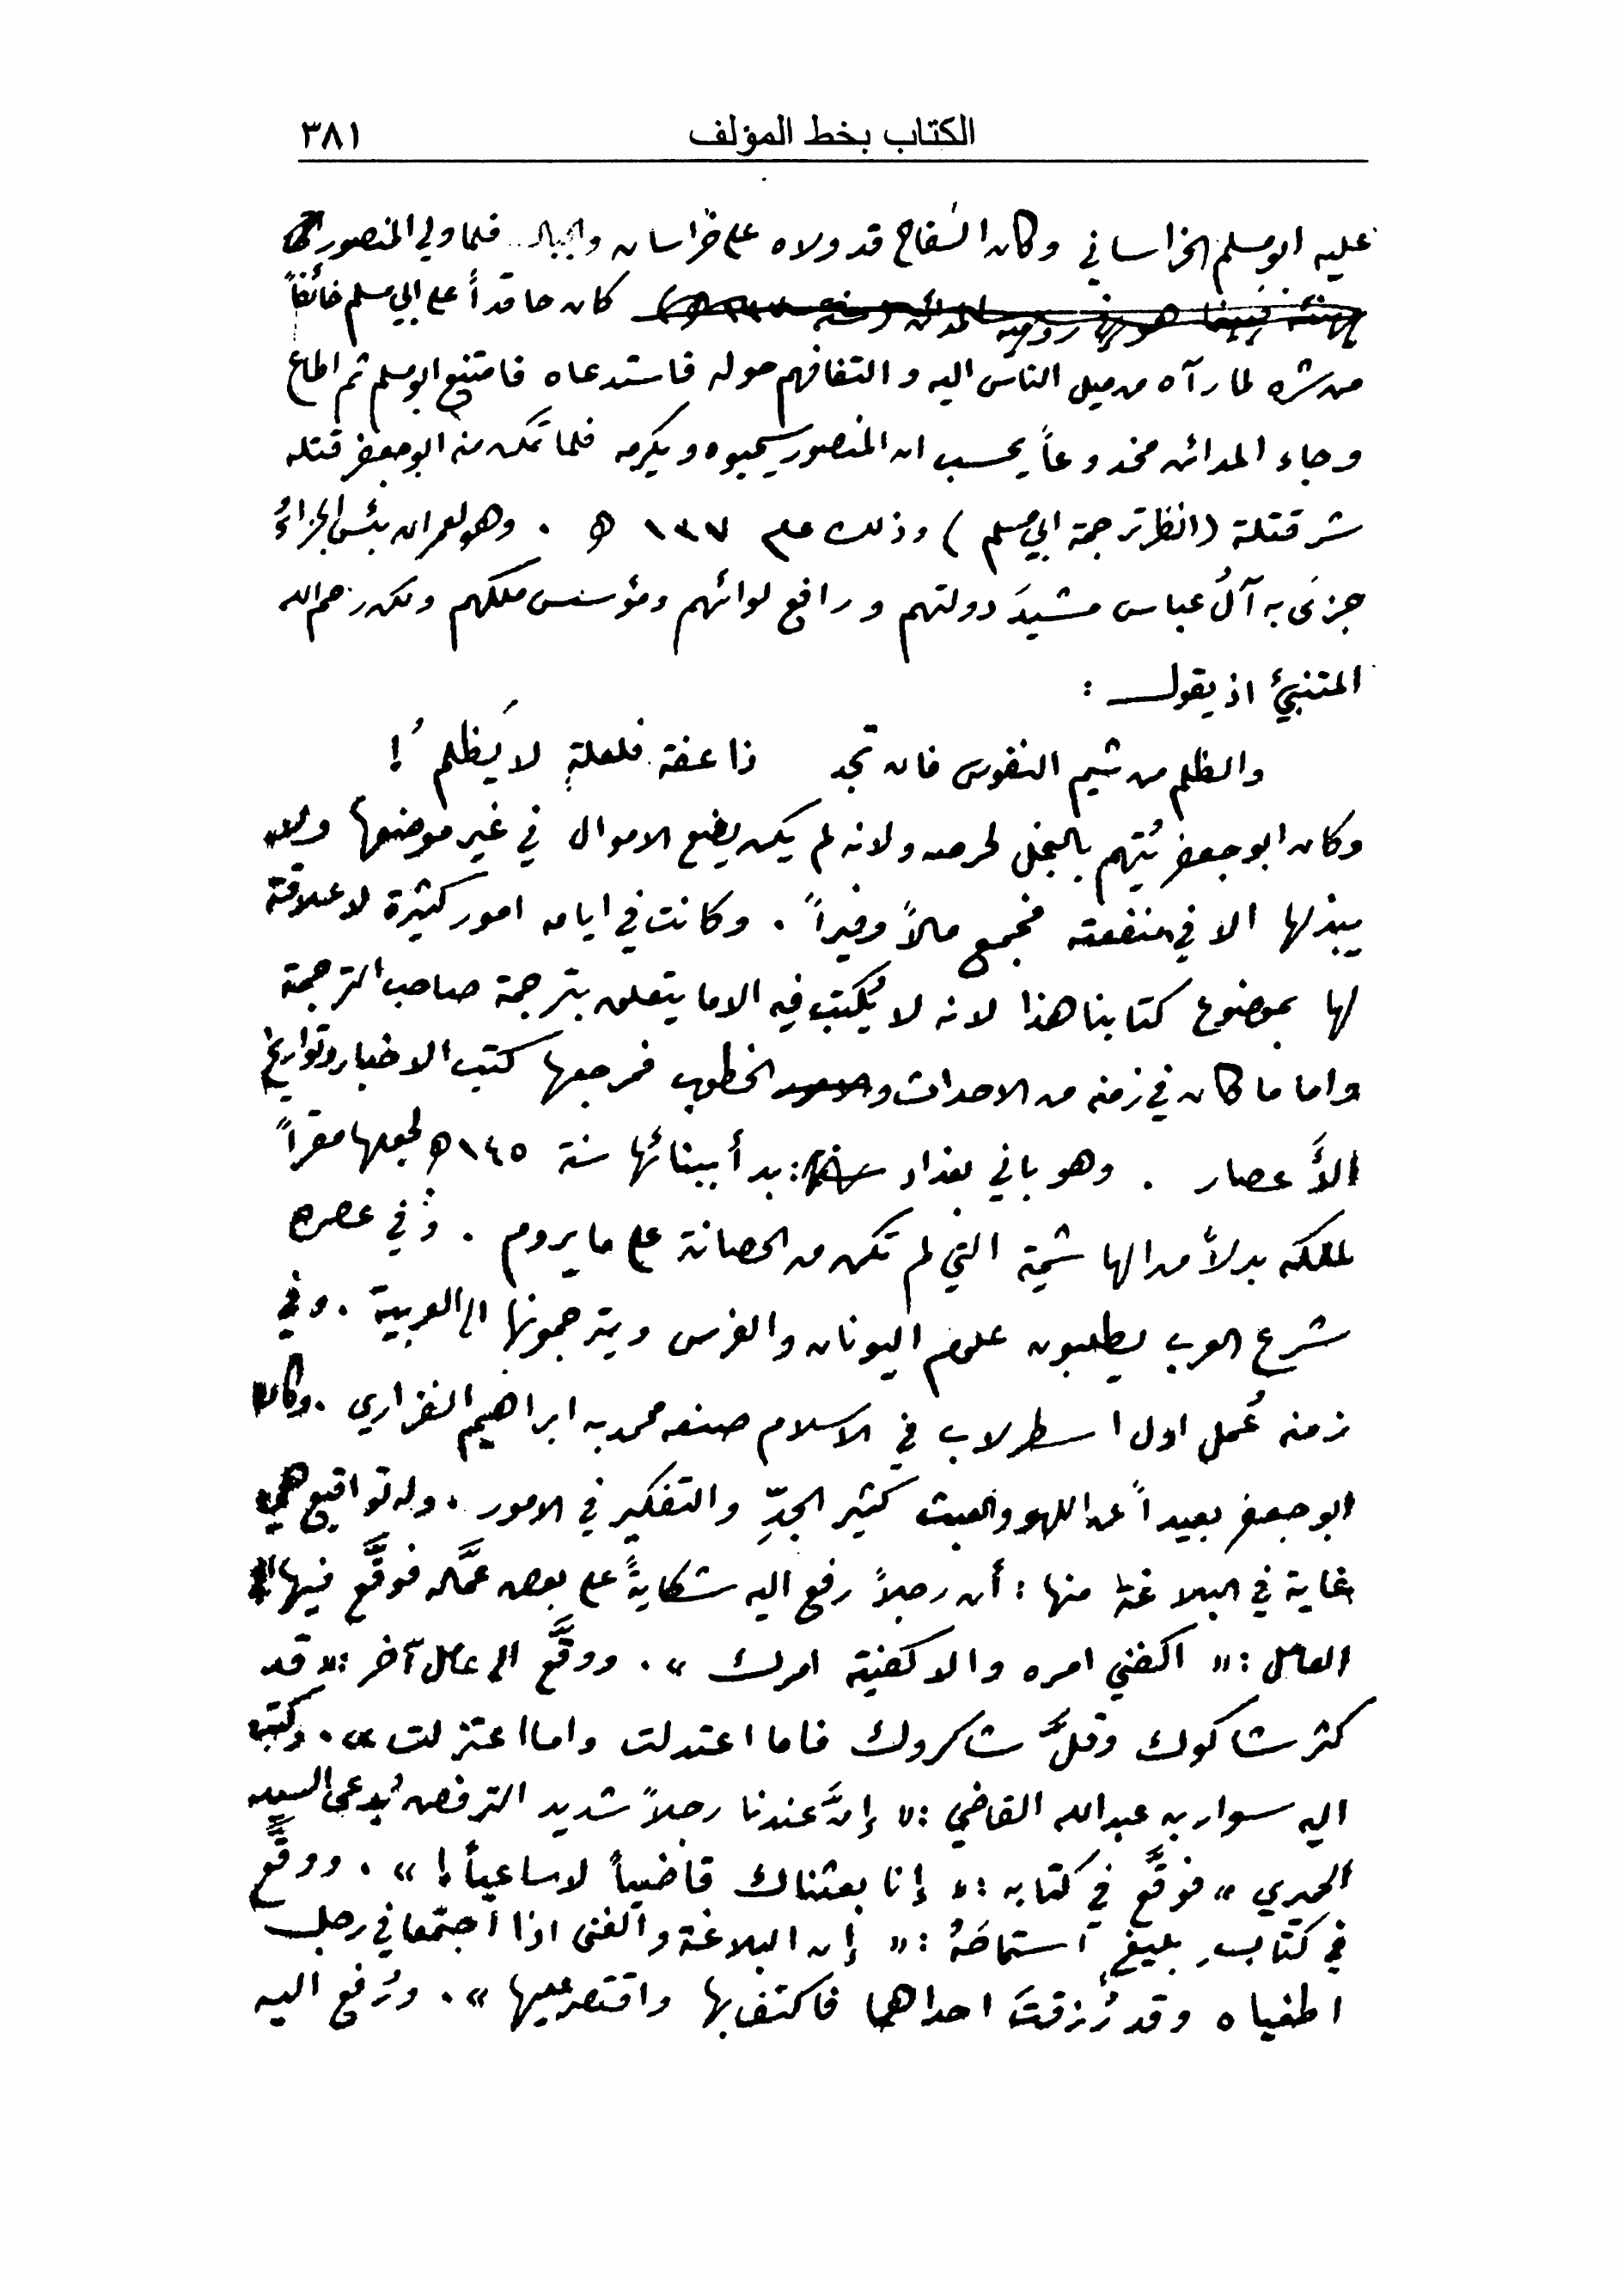 الكتاب بخط المؤلف ٣٨١
عليه ابو مسلم الخراساني وكان السَفاح قد ولاه على خراسان والجبال فلما ولي المنصور
كان حاقداً على ابي مسلم خائفاً
من شره لما رآه من ميل الناس اليه والتفافهم حوله فاستدعاه فامتنع ابو مسلم ثم اطاع
وجاء المدائن مخدوعاً يحسب ان المنصور سيحبوه ويكرمه فلما تمكن منه ابو جعفر قتله
شر قتلة (انظر ترجمة ابي مسلم) وذلك عام ١٣٧ ه . وهو لعمر الله بئس الجزاءُ
جزَى به آلُ عباس مشيدَ دولتهم ورافع لوائهم ومؤسس ملكهم ولكن رحم الله
المتنبيُ اذ يقول :
والظلم من شيم النفوس فان تجد ذا عفة فلعلةٍ لا يَظلمُ !
وكان ابو جعفر يُتهم بالبخل لحرصه ولانه لم يكن يضع الاموال في غير موضعها ولا
يبذلها الا في منفعته فجمع مالاً وفيراً . وكانت في ايامه امور كثيرة لا علاقة
لها بموضوع كتابنا هذا لانه لا يُكتب فيه الا ما يتعلق بترجمة صاحب الترجمة
واما ما كان في زمنه من الاحداث و الخطوب فمرجعها كتب الاخبار وتواريخ
الأَعصار . وهو باني بغداد : بدأ ببنائها سنة ١٤٥ ه لجعلها مقراً
لملكه بدلاً من الهاشمية التي لم تكن من الحصانة على ما يروم . وفي عصره
شرع العرب يطلبون علوم اليونان والفرس ويترجمونها الى العربية . وفي
زمنه عُمل اول اسطرلاب في الاسلام صنعه محمد بن ابراهيم الفزاري . وكان
ابو جعفر بعيداً عن اللهو والعبث كثير الجدِّ والتفكير في الامور . وله تواقيع هي
غاية في البلاغة منها : أن رجلاً رفع اليه شكايةً على بعض عمَّاله فوقَّع فيها الى
العامل : « اكفني امره والا كفيته امرك » . ووقَّع الى عامل آخر : « قد
كثر شاكوك وقلَّ شاكروك فاما اعتدلت واما اعتزلت » . وكتب
اليه سوار بن عبد الله القاضي : « إنَّ عندنا رجلاً شديد الترفض يُدعى السيد
الحميري » فوقَّع في كتابه : « إنا بعثناك قاضياً لا ساعياً ! » . ووقَّع
في كتابِ بليغٍ استماحَهُ : « إن البلاغة والغنى اذا اجتمعا في رجل
اطغياه وقد رُزقتَ احداهما فاكتفِ بها واقتصر عليها » . ورُفع اليه